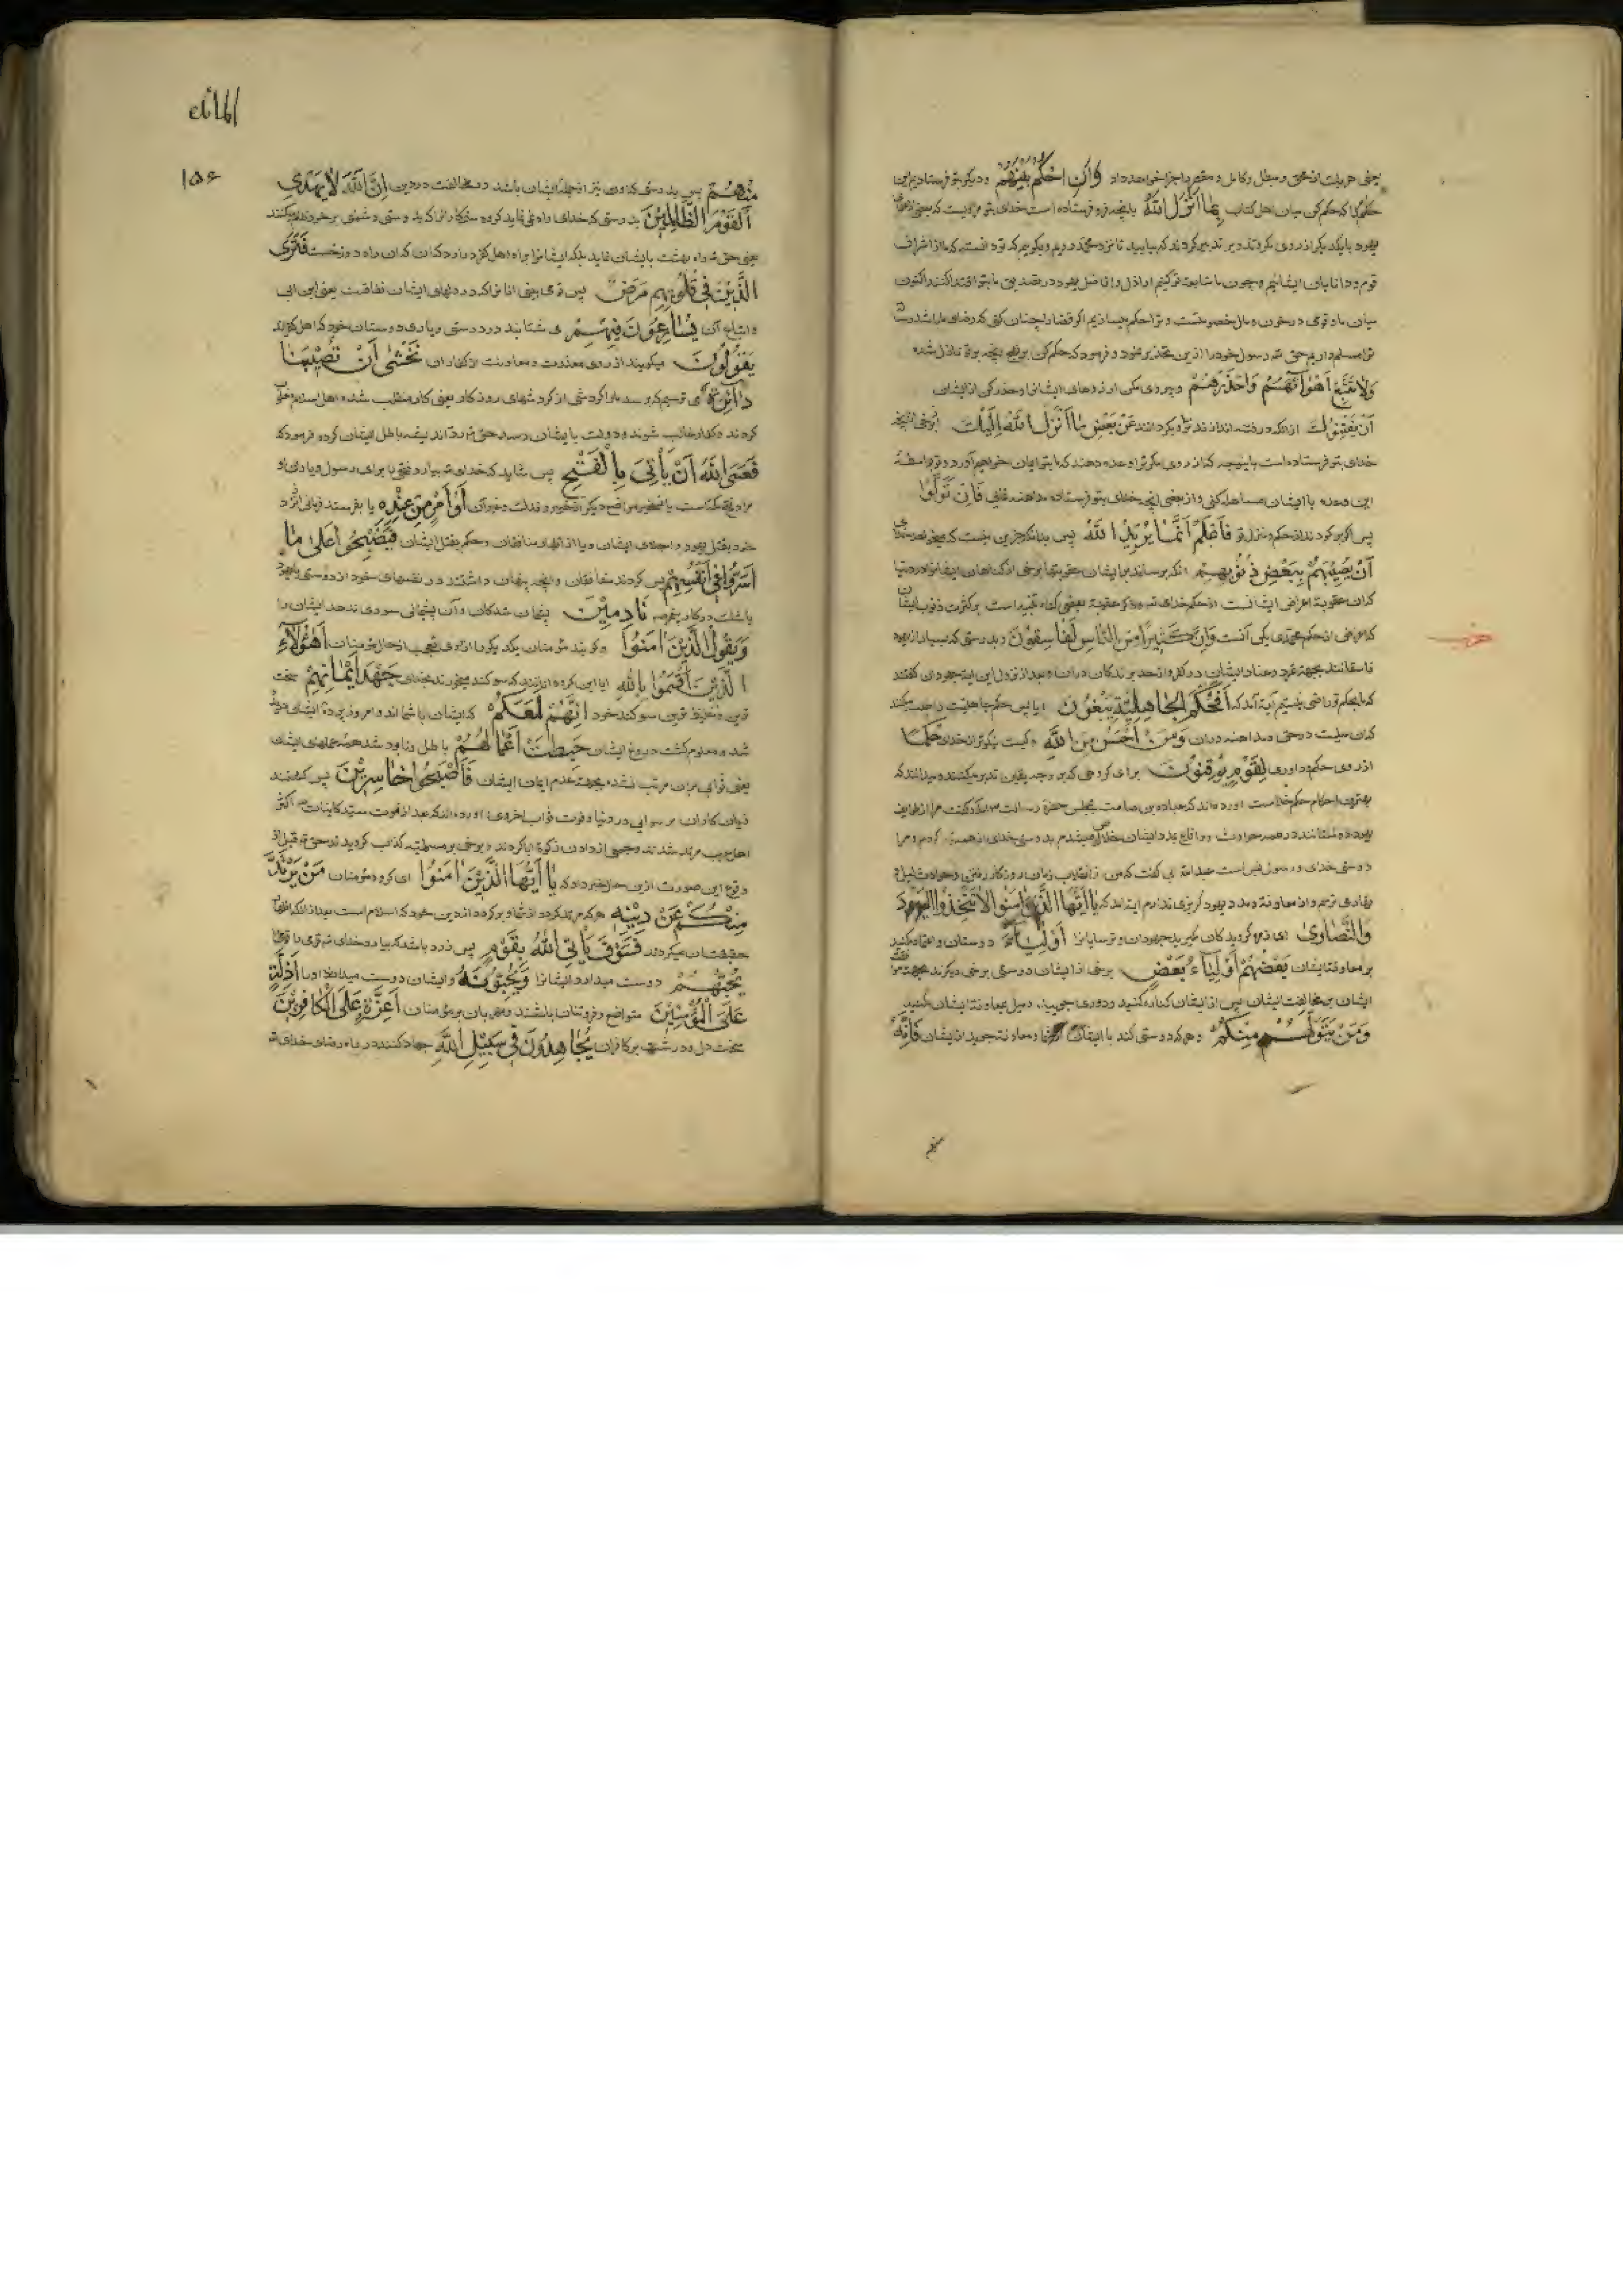 یعنی هر یک از محق و مبطل و کامل و مقصر را جزا خواهد داد وَاَنِ احْكُمْ بَيْنَهُمْ و دیگر بتو فرستادیم این
حکم را که حکم کن میان اهل کتاب بِمَا اَنْزَلَ اللّٰهُ بانچه فرو فرستاده است خدای بتو
یهود با یکدیگر از روی مکر تدبیر کردند که بیایید تا نزد محمد رویم و بگوییم که تو دانسته که ما از اشراف
قوم و دانایان ایشانیم و چون ما متابعت تو کنیم اراذل و افاضل یهود در تصدیق ما بتو اقتدا کنند اکنون
میان ما و قومی در خون و مال خصومتست و ترا حکم میسازیم اگر قضا را چنان کنی که رضای ما باشد
ترا مسلم داریم حق رسول خود را ازین تحذیر نمود و فرمود که حکم کن بر انچه بر تو نازل شده
وَلَا تَتَّبِعْ اَهْوَاءَهُمْ وَاحْذَرْهُمْ و پیروی مکن ارزوهای ایشانرا و حذر کن از ایشان
اَنْ يَفْتِنُوكَ از انکه در فتنه اندازند ترا و بگردانند عَنْ بَعْضِ مَا اَنْزَلَ اللّٰهُ اِلَيْكَ از برخی انچه
خدای بتو فرستاده است باینوجه که از روی مکر ترا وعده دهند که بتو ایمان خواهیم آورد و تو بواسطهٔ
این وعده با ایشان مساهله کنی و از بعضی انچه خدای بتو فرستاده مداهنه نمایی فَاِنْ تَوَلَّوْا
پس اگر برگردند از حکم منزل تو فَاعْلَمْ اَنَّمَا يُرِيدُ اللّٰهُ پس بدانکه جزین نیست که میخواهد خدا
اَنْ يُصِيبَهُمْ بِبَعْضِ ذُنُوبِهِمْ انکه برساند بایشان عقوبتها برخی از گناهان ایشانرا در دنیا
که ان عقوبة اعراض ایشانست از حکم خدای و ذکر عقوبة بعضی گناه تنبیه است بر کثرت ذنوب ایشان
که اعراض از حکم محمدی یکی آنست وَاِنَّ كَثِيرًا مِنَ النَّاسِ لَفَاسِقُونَ و بدرستی که بسیار از یهود
فاسقانند بجهة تمرد و عناد ایشان در کفر و از حد برندگان دران و بعد از نزول این ایة جهودان گفتند
که ما بحکم تو راضی نیستیم آیه آمد که اَفَحُكْمَ الْجَاهِلِيَّةِ يَبْغُونَ ایا پس حکم جاهلیت را طلب میکنند
که ان میلست در حق و مداهنه دران وَمَنْ اَحْسَنُ مِنَ اللّٰهِ و کیست نیکوتر از خدای حُكْمًا
از روی حکم و داوری لِقَوْمٍ يُوقِنُونَ برای گروهی که بر وجه یقین تدبر میکنند و میدانند که
بهترین احکام حکم خداست اورده اند که عباده بن صامت بمجلس حضرة رسالت امد و گفت مرا از طایفه
یهود دوستانند در همه حوادث و وقایع بمدد ایشان بدوستی خدای از همه تبرا کردم و مرا
دوستی خدای و رسول بس است عبدالله ابی گفت که من از انقلاب زمان و روزگار
میترسم و از معاونة و مدد یهود گریزی ندارم ایة امد که يَا اَيُّهَا الَّذِينَ اٰمَنُوا لَا تَتَّخِذُوا الْيَهُودَ
وَالنَّصَارٰى ای گرویدگان مگیرید جهودان و ترسایانرا اَوْلِيَاءَ دوستان و اعتماد مکنید
بر معاونت ایشان بَعْضُهُمْ اَوْلِيَاءُ بَعْضٍ برخی از ایشان دوستی برخی دیگرند بجهة
ایشان بر مخالفت ایشان پس از ایشان کناره کنید و دوری جویید و میل بمعاونة ایشان مکنید
وَمَنْ يَتَوَلَّهُمْ مِنْكُمْ و هرکه دوستی کند با ایشان از شما و معاونة جوید از ایشان فَاِنَّهُ
منهم
حزب
المائده
۱۵۶
مِنْهُمْ پس بدرستی که او نیز از جمله ایشان باشد در مخالفت دین اِنَّ اللّٰهَ لَا يَهْدِى
الْقَوْمَ الظَّالِمِينَ بدرستی که خدای راه ننماید گروه ستمکاران را که بدوستی دشمنی بر خود ظلم میکنند
یعنی حق راه بهشت بایشان ننماید بلکه ایشانرا براه اهل کفر دارد که ان راه دوزخست فَتَرَى
الَّذِينَ فِى قُلُوبِهِمْ مَرَضٌ پس تو می بینی انانرا که در دلهای ایشان نفاقست یعنی ابن ابی
و اتباع آن يُسَارِعُونَ فِيهِمْ می شتابند در دوستی و یاری دوستان خود که اهل کفرند
يَقُولُونَ میگویند از روی معذرت و معاونت کفاران نَخْشٰى اَنْ تُصِيبَنَا
دَائِرَةٌ می ترسیم که برسد ما را گردشی از گردشهای روزگار یعنی کار منقلب شده اهل اسلام مغلوب
گردند و کفار غالب شوند و دولت بایشان رسد حق رد اندیشه باطل ایشان کرده فرمود که
فَعَسَى اللّٰهُ اَنْ يَأْتِىَ بِالْفَتْحِ پس شاید که خدای بیارد فتح را برای رسول و یاران او
مراد فتح مکه است یا فتح مواضع دیگر از خیبر و فدک و غیر آن اَوْ اَمْرٍ مِنْ عِنْدِهِ یا بفرستد فرمانی از نزد
خود بقتل یهود و اجلای ایشان و یا از اظهار منافقان و حکم بقتل ایشان فَيُصْبِحُوا عَلٰى مَا
اَسَرُّوا فِى اَنْفُسِهِمْ پس گردند منافقان بر انچه پنهان داشتند در نفسهای خود از دوستی یا یهود
یا شک در کار پیغمبر نَادِمِينَ پشیمان شدگان و آن پشیمانی سودی ندهد ایشان را
وَيَقُولُ الَّذِينَ اٰمَنُوا و گویند مؤمنان یکدیگر را از روی تعجب از حال منافقان اَهٰؤُلَاءِ
الَّذِينَ اَقْسَمُوا بِاللّٰهِ ایا این گروه انانند که سوگند میخورند بخدای جَهْدَ اَيْمَانِهِمْ سخت
ترین و غلیظ ترین سوگند خود اِنَّهُمْ لَمَعَكُمْ که ایشان با شمااند و امروز پرده ایشان دریده
شد و معلوم گشت دروغ ایشان حَبِطَتْ اَعْمَالُهُمْ باطل و نابود شد همه عملهای ایشان
یعنی ثوابی بران مرتب نشد بجهة عدم ایمان ایشان فَاَصْبَحُوا خَاسِرِينَ پس گشتند
زیان کاران برسوایی در دنیا و فوت ثواب اخروی اورده اند که بعد از فوت سید کاینات اکثر
اهل عرب مرتد شدند و جمعی از دادن زکوة ابا کردند و برخی بر مسیلمه کذاب گرویدند حق قبل از
وقوع این صورت ازین حال خبر داد که يَا اَيُّهَا الَّذِينَ اٰمَنُوا ای گروه مؤمنان مَنْ يَرْتَدَّ
مِنْكُمْ عَنْ دِينِهِ هر که مرتد گردد از شما و برگردد از دین خود که اسلام است بعد از انکه اظهار
حقیقت ان میکردند فَسَوْفَ يَأْتِى اللّٰهُ بِقَوْمٍ پس زود باشد که بیارد خدای قومی را
يُحِبُّهُمْ دوست میدارد ایشانرا وَيُحِبُّونَهُ و ایشان دوست میدارند او را اَذِلَّةٍ
عَلَى الْمُؤْمِنِينَ متواضع و فروتنان باشند و مهربان بر مؤمنان اَعِزَّةٍ عَلَى الْكَافِرِينَ
سخت دل و درشت بر کافران يُجَاهِدُونَ فِى سَبِيلِ اللّٰهِ جهاد کنند در راه رضای خدای